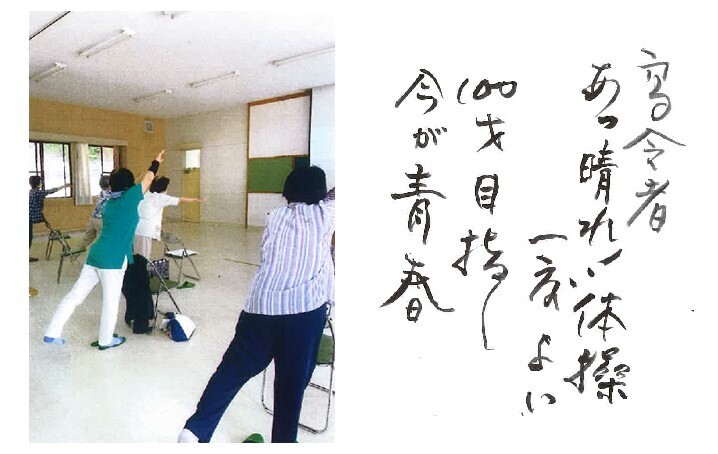 高令者
あっ晴れ!!体操
よい
100才目指し
今が青春